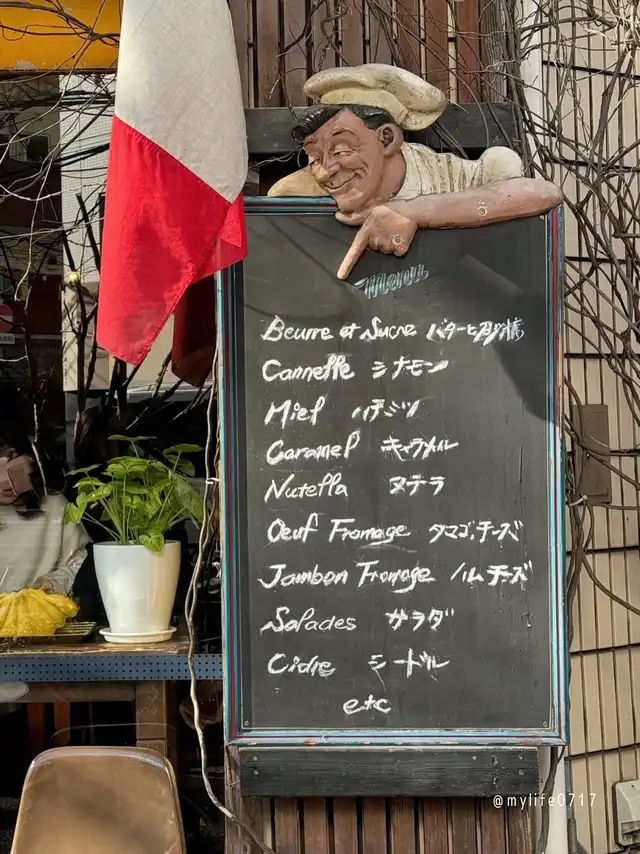 Menu
Beurre et Sucre バターと砂糖
Cannelle シナモン
Miel ハチミツ
Caramel キャラメル
Nutella ヌテラ
Oeuf Fromage タマゴ,チーズ
Jambon Fromage ハム チーズ
Salades サラダ
Cidre シードル
etc
@mylife0717